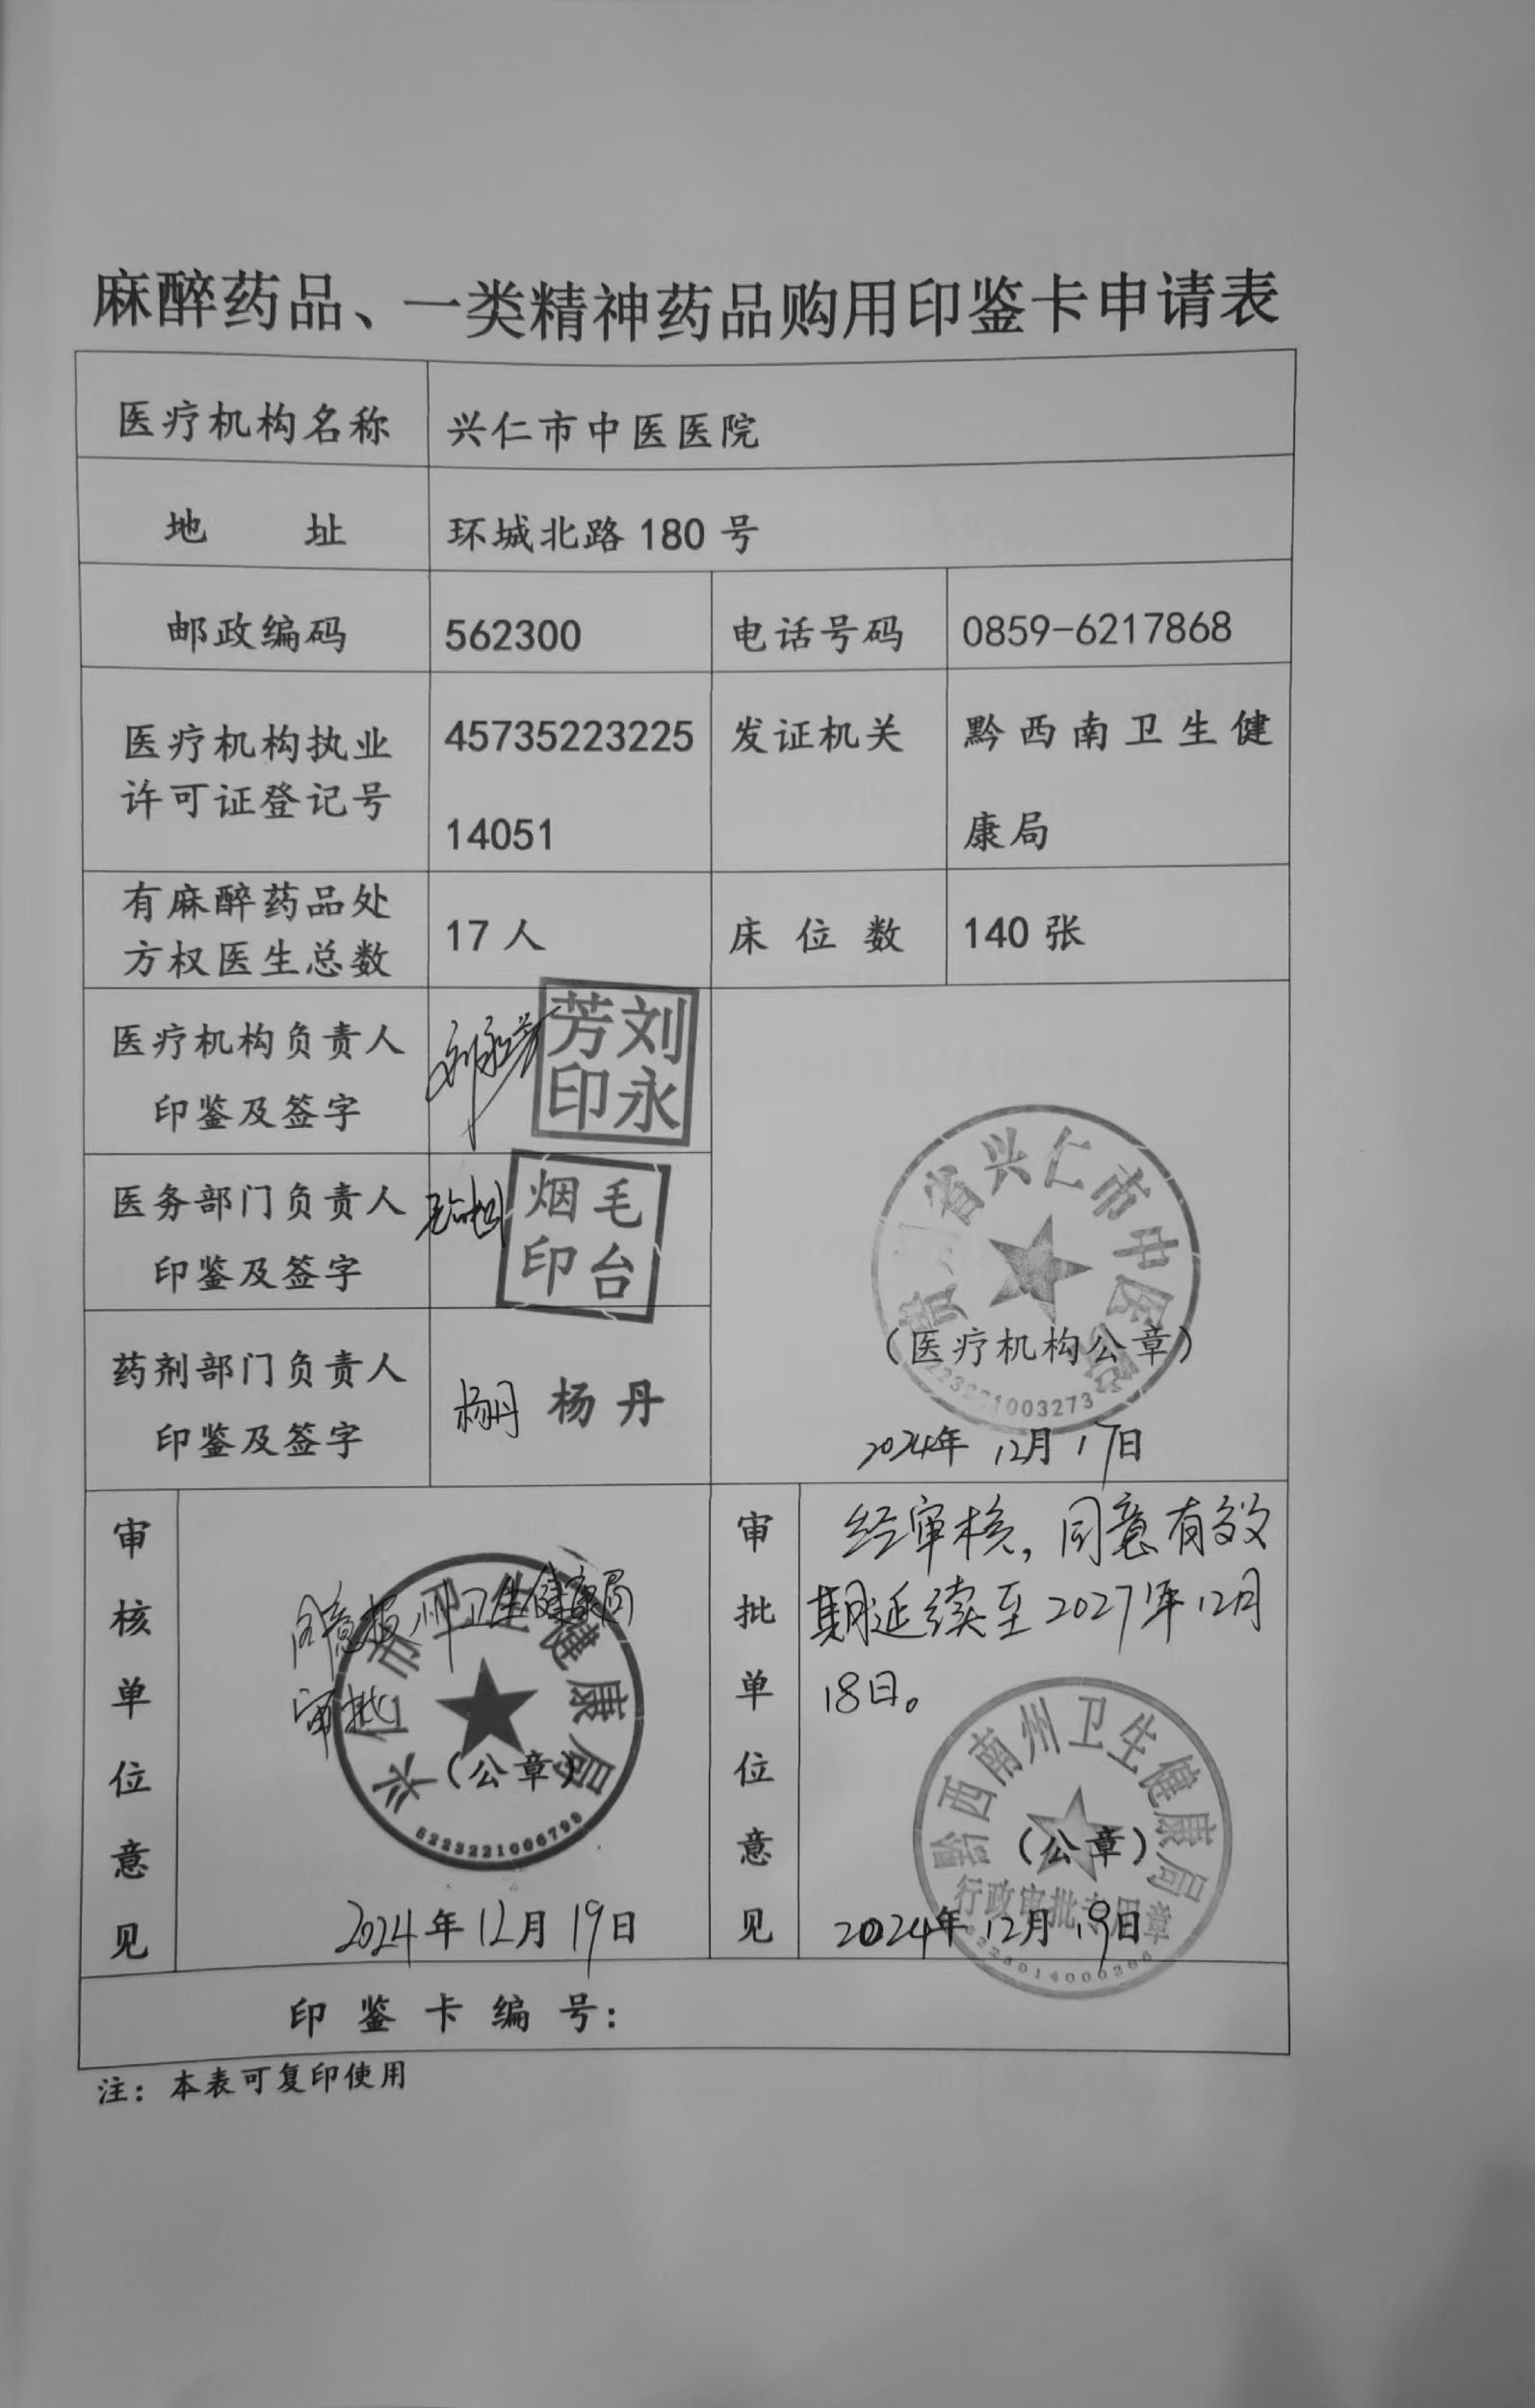 麻醉药品、一类精神药品购用印鉴卡申请表
医疗机构名称 兴仁市中医医院
地 址 环城北路 180 号
邮政编码 562300 电话号码 0859-6217868
医疗机构执业
许可证登记号
45735223225
14051
发证机关
黔西南卫生健
康局
有麻醉药品处
方权医生总数
17 人
床位数 140 张
医疗机构负责人
印鉴及签字
刘永芳
刘永芳印
医务部门负责人
印鉴及签字
毛台烟
毛台烟印
药剂部门负责人
印鉴及签字
杨丹 杨丹
贵州省兴仁市中医医院
(医疗机构公章)
2024年 12月 17日
审核单位意见
同意报州卫生健康局
审批
兴仁市卫生健康局
(公章)
5223221006798
2024年12月19日
审批单位意见
经审核,同意有效
期延续至2027年12月
18日。
黔西南州卫生健康局
(公章)
行政审批专用章
2024年12月19日
印鉴卡编号:
注:本表可复印使用